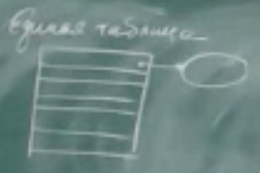 Единая таблица